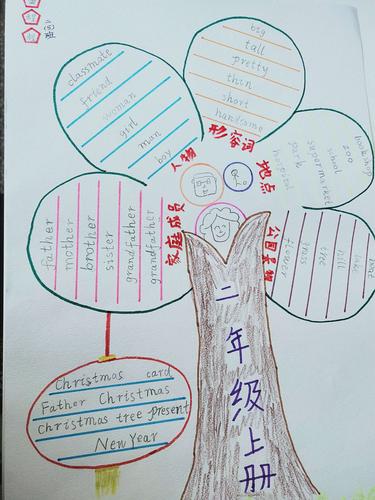 classmate
friend
woman
girl
man
boy
人物
big
tall
pretty
thin
short
handsome
形容词
bookshop
zoo
school
supermarket
park
hospital
地点
father
mother
brother
sister
grandfather
grandfather
家庭成员
flower
grass
tree
hill
lake
boat
公园景观
二年级上册
Christmas card
Father Christmas
Christmas tree present
New Year